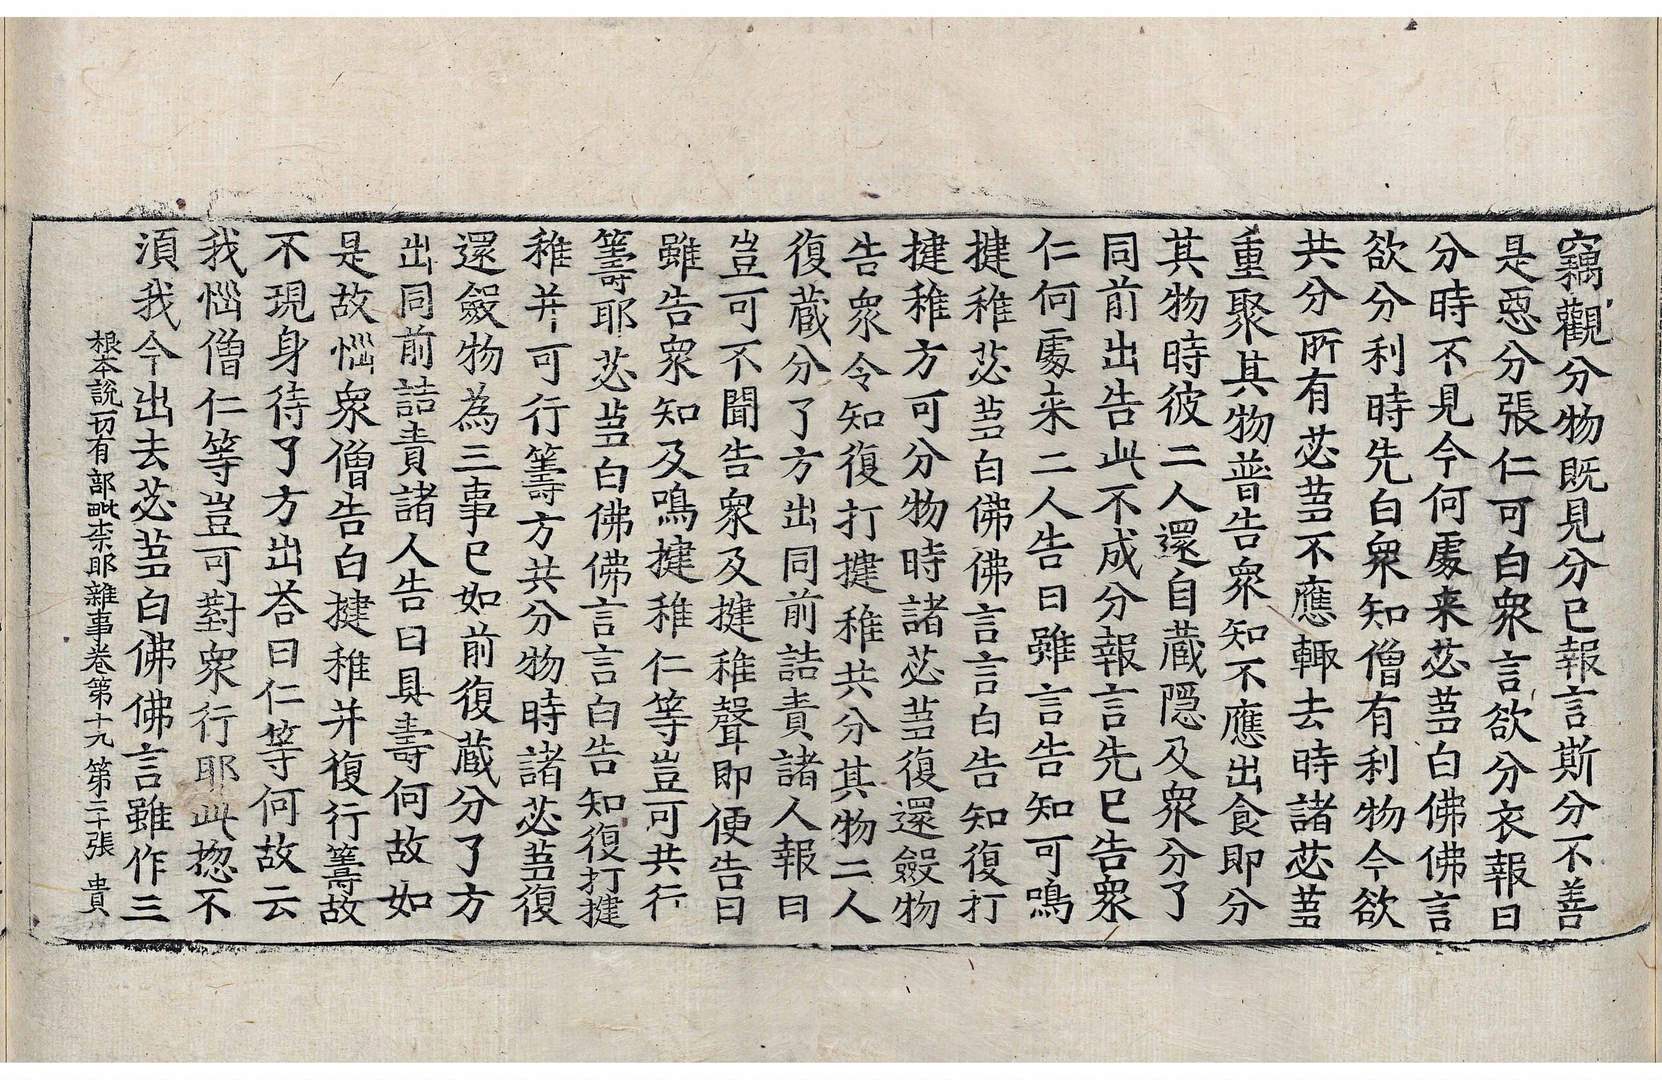 竊觀分物既見分已報言斯分不善
是惡分張仁可白衆言欲分衣報曰
分時不見今何處来苾芻白佛佛言
欲分利時先白衆知僧有利物今欲
共分所有苾芻不應輙去時諸苾芻
重聚其物普告衆知不應出食即分
其物時彼二人還自蔵隱及衆分了
同前出告此不成分報言先已告衆
仁何處来二人告曰雖言告知可鳴
揵稚苾芻白佛佛言言白告知復打
揵稚方可分物時諸苾芻復還斂物
告衆令知復打揵稚共分其物二人
復蔵分了方出同前詰責諸人報曰
豈可不聞告衆及揵稚聲即便告曰
雖告衆知及鳴揵稚仁等豈可共行
籌耶苾芻白佛佛言言白告知復打揵
稚并可行籌方共分物時諸苾芻復
還斂物為三事已如前復蔵分了方
出同前詰責諸人告曰具壽何故如
是故惱衆僧告白揵稚并復行籌故
不現身待了方出荅曰仁等何故云
我惱僧仁等豈可對衆行耶此揔不
湏我今出去苾芻白佛佛言雖作三
根本說一切有部毗柰耶雜事卷第十九 第二十張 貴